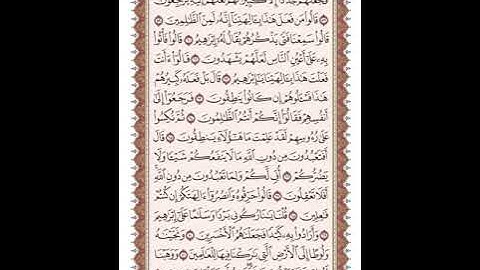 فَجَعَلَهُمْ جُذَٰذًا إِلَّا كَبِيرًا لَّهُمْ لَعَلَّهُمْ إِلَيْهِ يَرْجِعُونَ
قَالُوا۟ مَن فَعَلَ هَٰذَا بِـَٔالِهَتِنَآ إِنَّهُۥ لَمِنَ ٱلظَّٰلِمِينَ
قَالُوا۟ سَمِعْنَا فَتًى يَذْكُرُهُمْ يُقَالُ لَهُۥٓ إِبْرَٰهِيمُ قَالُوا۟ فَأْتُوا۟
بِهِۦ عَلَىٰٓ أَعْيُنِ ٱلنَّاسِ لَعَلَّهُمْ يَشْهَدُونَ قَالُوٓا۟ ءَأَنتَ
فَعَلْتَ هَٰذَا بِـَٔالِهَتِنَا يَٰٓإِبْرَٰهِيمُ قَالَ بَلْ فَعَلَهُۥ كَبِيرُهُمْ
هَٰذَا فَسْـَٔلُوهُمْ إِن كَانُوا۟ يَنطِقُونَ فَرَجَعُوٓا۟ إِلَىٰٓ
أَنفُسِهِمْ فَقَالُوٓا۟ إِنَّكُمْ أَنتُمُ ٱلظَّٰلِمُونَ ثُمَّ نُكِسُوا۟
عَلَىٰ رُءُوسِهِمْ لَقَدْ عَلِمْتَ مَا هَٰٓؤُلَآءِ يَنطِقُونَ قَالَ
أَفَتَعْبُدُونَ مِن دُونِ ٱللَّهِ مَا لَا يَنفَعُكُمْ شَيْـًٔا وَلَا
يَضُرُّكُمْ أُفٍّ لَّكُمْ وَلِمَا تَعْبُدُونَ مِن دُونِ ٱللَّهِ
أَفَلَا تَعْقِلُونَ قَالُوا۟ حَرِّقُوهُ وَٱنصُرُوٓا۟ ءَالِهَتَكُمْ إِن كُنتُمْ
فَٰعِلِينَ قُلْنَا يَٰنَارُ كُونِى بَرْدًا وَسَلَٰمًا عَلَىٰٓ إِبْرَٰهِيمَ
وَأَرَادُوا۟ بِهِۦ كَيْدًا فَجَعَلْنَٰهُمُ ٱلْأَخْسَرِينَ وَنَجَّيْنَٰهُ
وَلُوطًا إِلَى ٱلْأَرْضِ ٱلَّتِى بَٰرَكْنَا فِيهَا لِلْعَٰلَمِينَ وَوَهَبْنَا